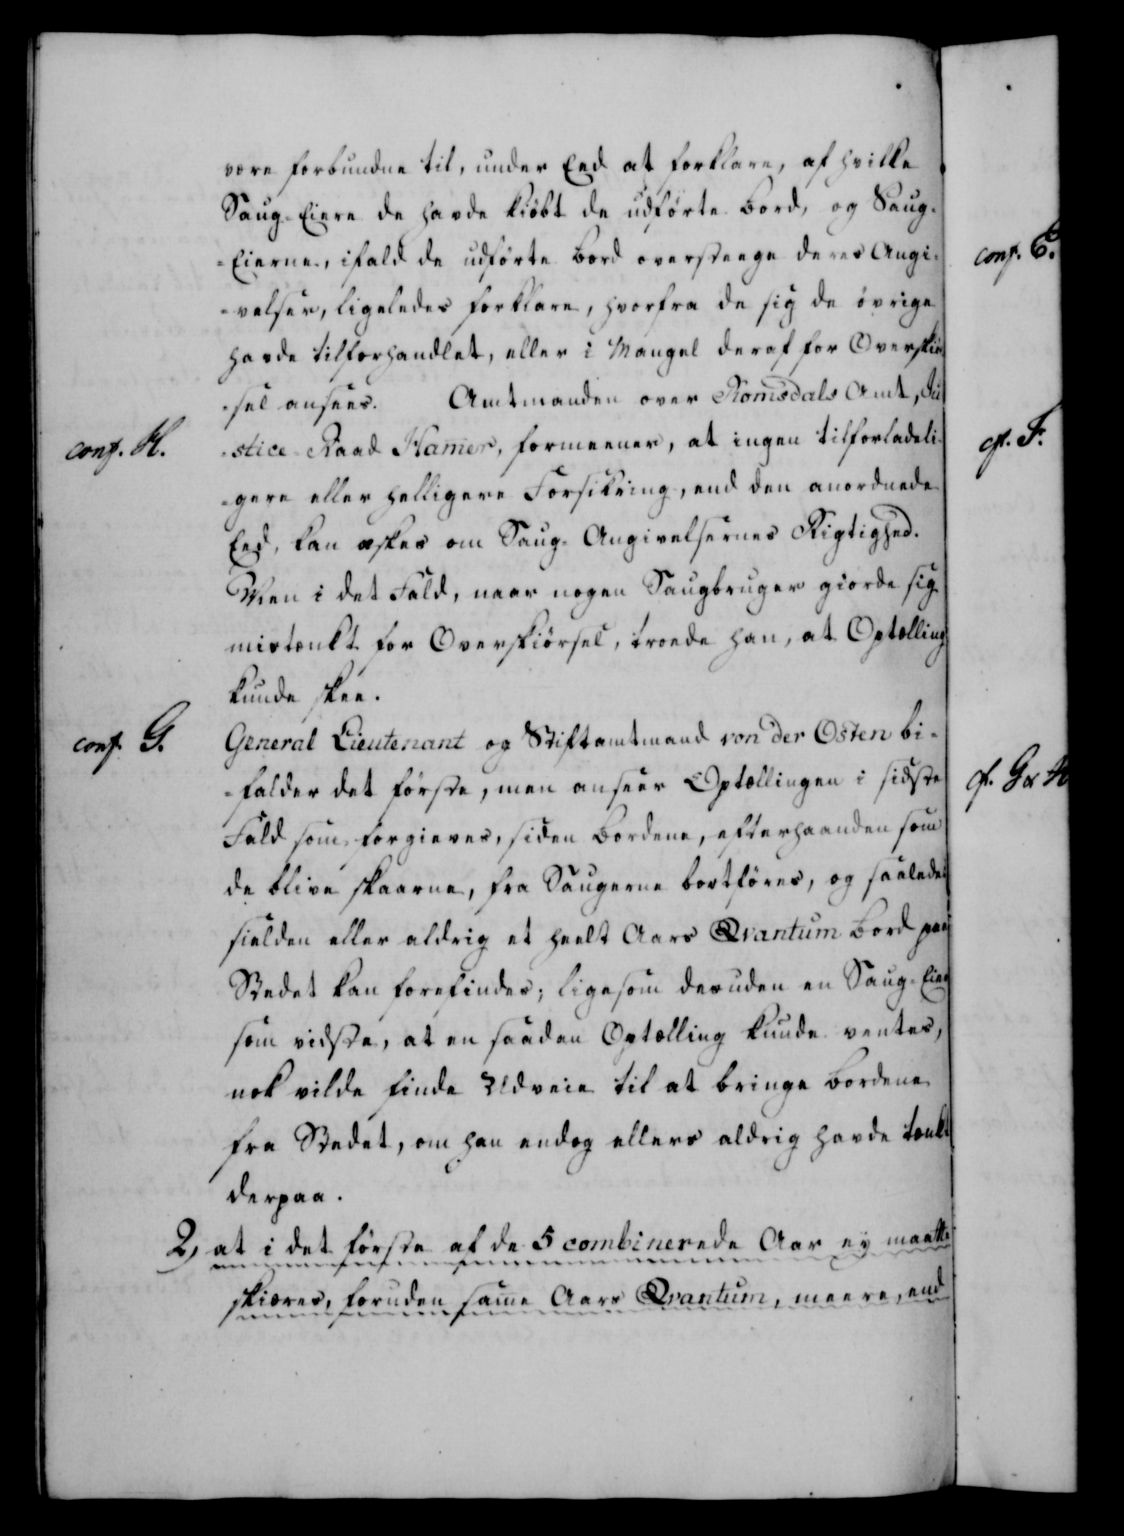 være forbundne til, under Eed at forklare, af hvilke
Saug-Eiere de havde kiøbt de udførte Bord, og Saug-
-Eierne, ifald de udførte Bord oversteege deres Angi-
-velser, ligeledes forklare, hvorfra de sig de øvrige
havde tilforhandlet, eller i Mangel deraf for Overskiør
-sel ansees. Amtmanden over Romsdals Amt, Ju
conf. H. -stice-Raad Hamer, formeener, at ingen tilforladeli-
-gere eller helligere Forsikring, end den anordnede
Eed, kan æskes om Saug-Angivelsernes Rigtighed.
Men i det Fald, naar nogen Saugbruger giorde sig
mistænkt for Overskiørsel, troede han, at Optælling
kunde skee.
conf. G. General Lieutenant og Stiftamtmand von der Osten bi-
-falder det første, men anseer Optællingen i sidste
Fald som forgieves, siden Bordene, efterhaanden som
de blive skaarne, fra Saugerne bortføres, og saaledes
sielden eller aldrig et heelt Aars Qvantum Bord paa
Stedet kan forefindes; ligesom desuden en Saug-Eier
som vidste, at en saadan Optælling kunde ventes,
nok vilde finde Udveie til at bringe Bordene
fra Stedet, om han endog ellers aldrig havde tænkt
derpaa.
2, at i det første af de 5 combinerede Aar ey maatte
skiæres, foruden samme Aars Qvantum, meere, end
conf. E.
cf. F.
cf. G & H